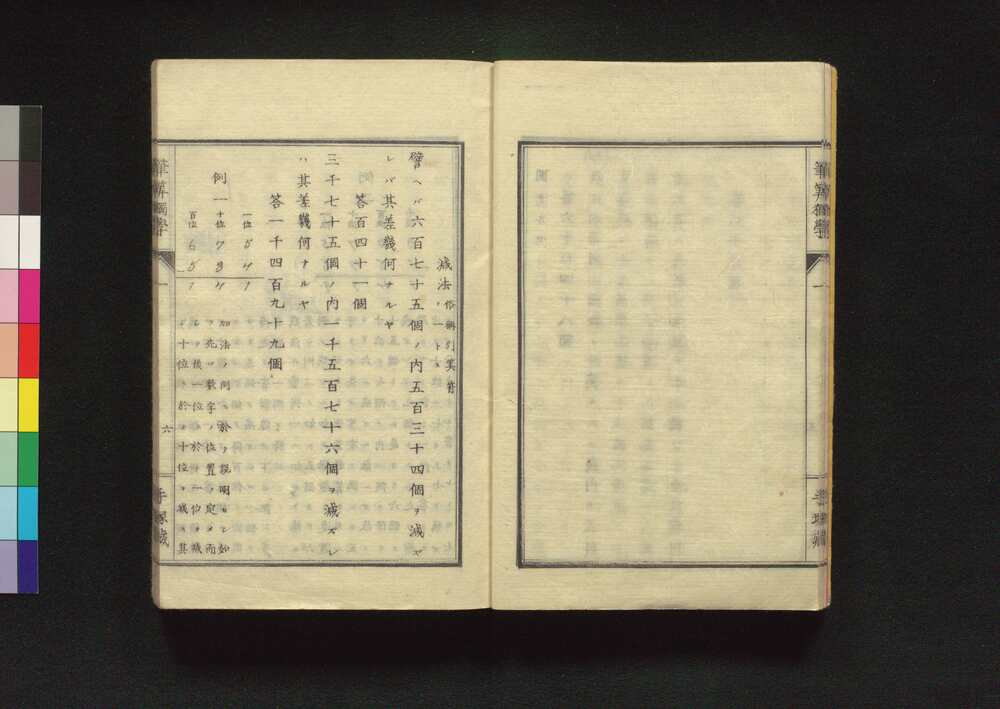 減法
譬ヘバ六百七十五個ノ内五百三十四個ヲ減ズ
レバ其差幾何ナルヤ
答百四十一個
三千七十五個ノ内一千五百七十六個ヲ減ズレ
バ其差幾何ナルヤ
答一千四百九十九個
例一
一位 5 4 1
十位 7 3 4
百位 6 5 1
加法ノ例ニ於テ説明セシ如
ク先ヅ数字ノ位置ヲ定メ而
シテ後一位ニ於テ一位ヲ減
ジ十位ニ於テ十位ヲ減ズ其
一
六
手塚蔵
一
手塚蔵